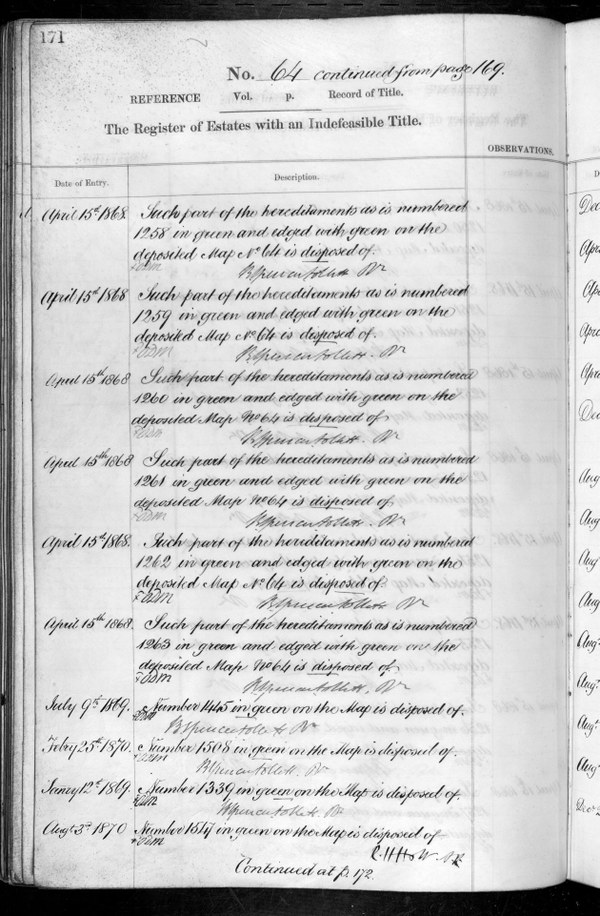 171
No. 64 continued from page 169.
REFERENCE Vol. p. Record of Title.
The Register of Estates with an Indefeasible Title.
OBSERVATIONS.
Date of Entry. Description.
April 15th 1868. Such part of the hereditaments as is numbered
1258 in green and edged with green on the
deposited Map No 64 is disposed of.
B Spencer Follett. Rr
April 15th 1868 Such part of the hereditaments as is numbered
1259 in green and edged with green on the
deposited Map No 64 is disposed of.
B Spencer Follett. Rr
April 15th 1868 Such part of the hereditaments as is numbered
1260 in green and edged with green on the
deposited Map No 64 is disposed of
B Spencer Follett. Rr
April 15th 1868 Such part of the hereditaments as is numbered
1261 in green and edged with green on the
deposited Map No 64 is disposed of.
B Spencer Follett. Rr
April 15th 1868. Such part of the hereditaments as is numbered
1262 in green and edged with green on the
deposited Map No 64 is disposed of.
B Spencer Follett Rr
April 15th 1868. Such part of the hereditaments as is numbered
1263 in green and edged with green on the
deposited Map No 64 is disposed of
B Spencer Follett. Rr
July 9th 1869. Number 1445 in green on the Map is disposed of.
B Spencer Follett Rr
Febry 25th 1870. Number 1508 in green on the Map is disposed of.
B Spencer Follett. Rr
Janry 12th 1869. Number 1339 in green on the Map is disposed of.
B Spencer Follett Rr
Augt 3rd 1870 Number 1517 in green on the Map is disposed of
Continued at p. 172.